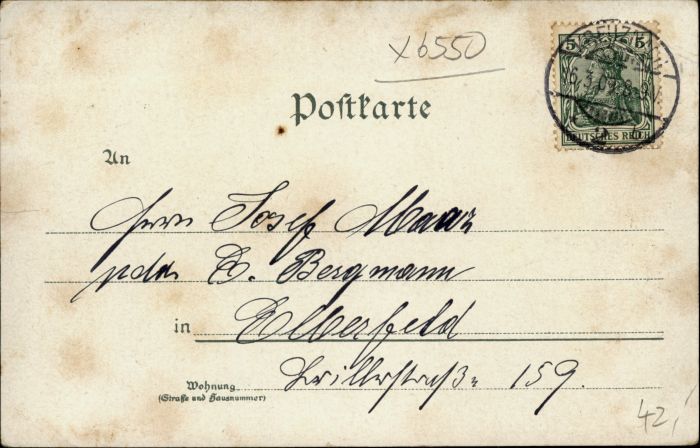 x6550
5 5
DEUTSCHES REICH
Postkarte
An
Herrn Josef Maaz
E. Bergmann
in Elberfeld
Brillerstraße 159.
Wohnung
(Straße und Hausnummer)
42,